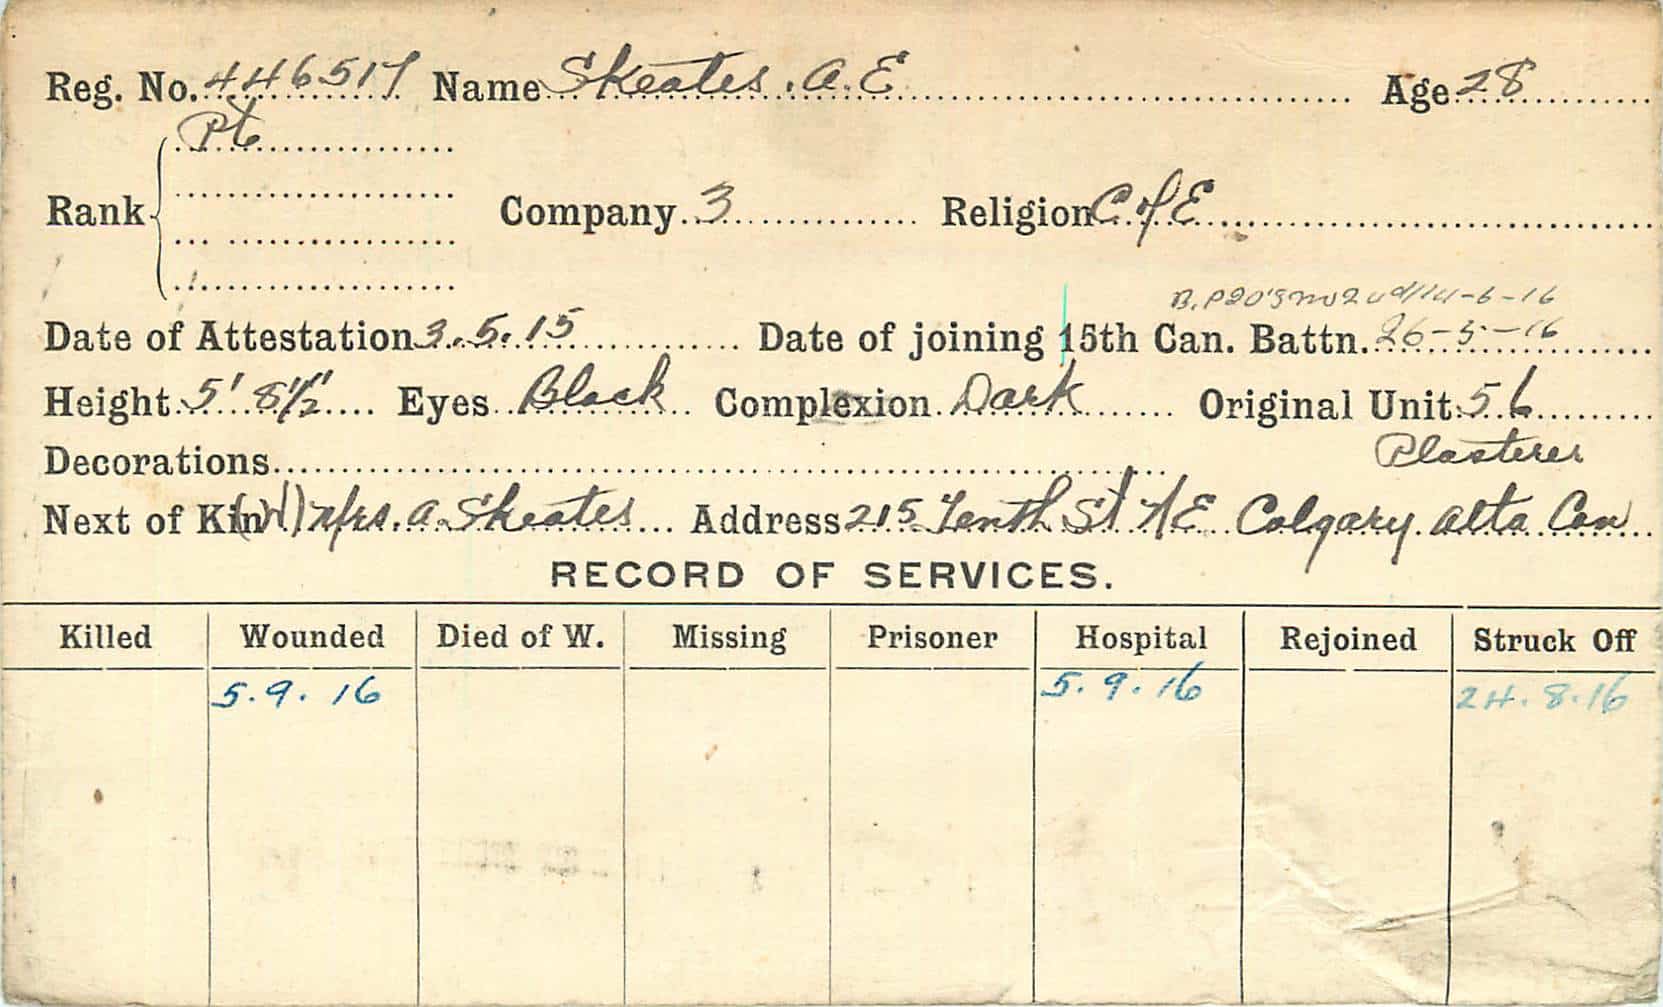 Reg. No. 446517 Name Skeates. A. E Age 28
Pte
Rank Company 3 Religion C of E
14-6-16
Date of Attestation 3.5.15 Date of joining 15th Can. Battn. 26-5-16
Height 5' 8½" Eyes Black Complexion Dark Original Unit 56
Decorations Plasterer
Next of Kin (W) Mrs. A. Skeates Address 215 Tenth St N E Calgary. Alta. Can
RECORD OF SERVICES.
Killed Wounded Died of W. Missing Prisoner Hospital Rejoined Struck Off
5.9.16 5.9.16 24.8.16